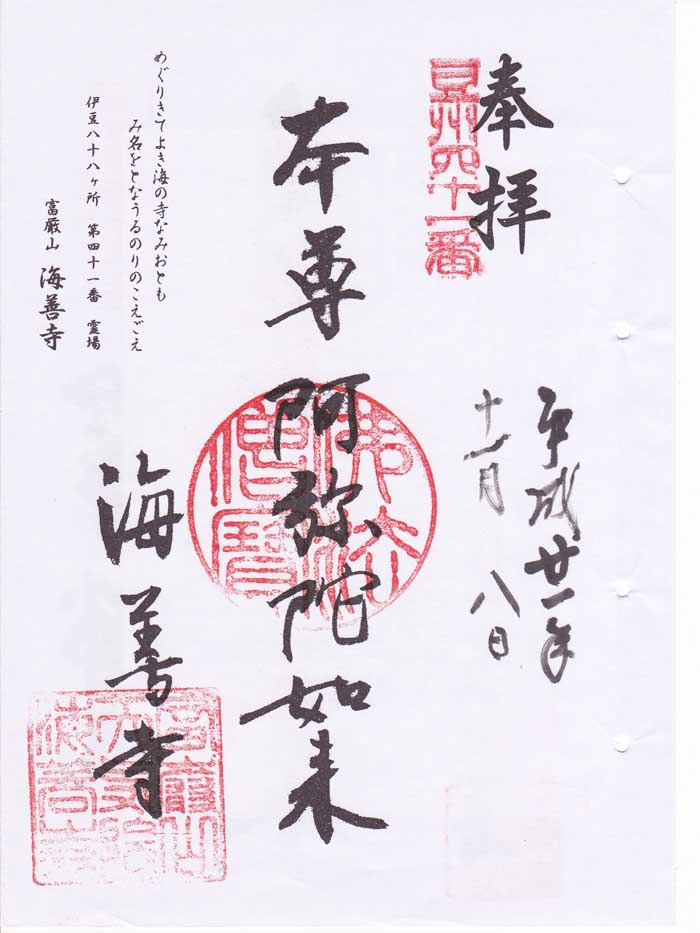 奉拝
豆州四十一番
平成廿一年
十一月 八日
本尊 阿弥陀如来
佛法僧寶
海善寺
めぐりきてよき海の寺なみおとも
み名をとなうるのりのこえごえ
伊豆八十八ヶ所 第四十一番 霊場
富厳山 海善寺